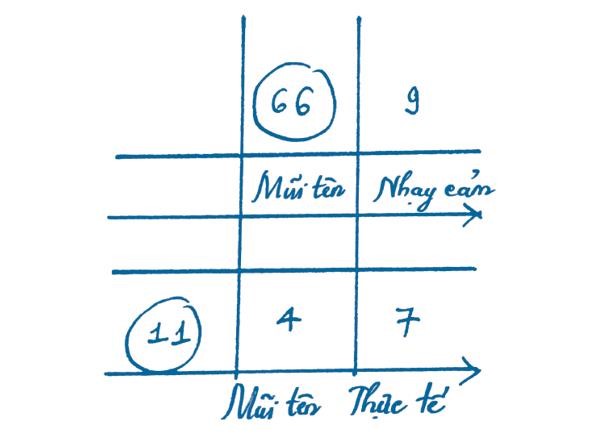 66 9
Mũi tên Nhạy cảm
11 4 7
Mũi tên Thực tế